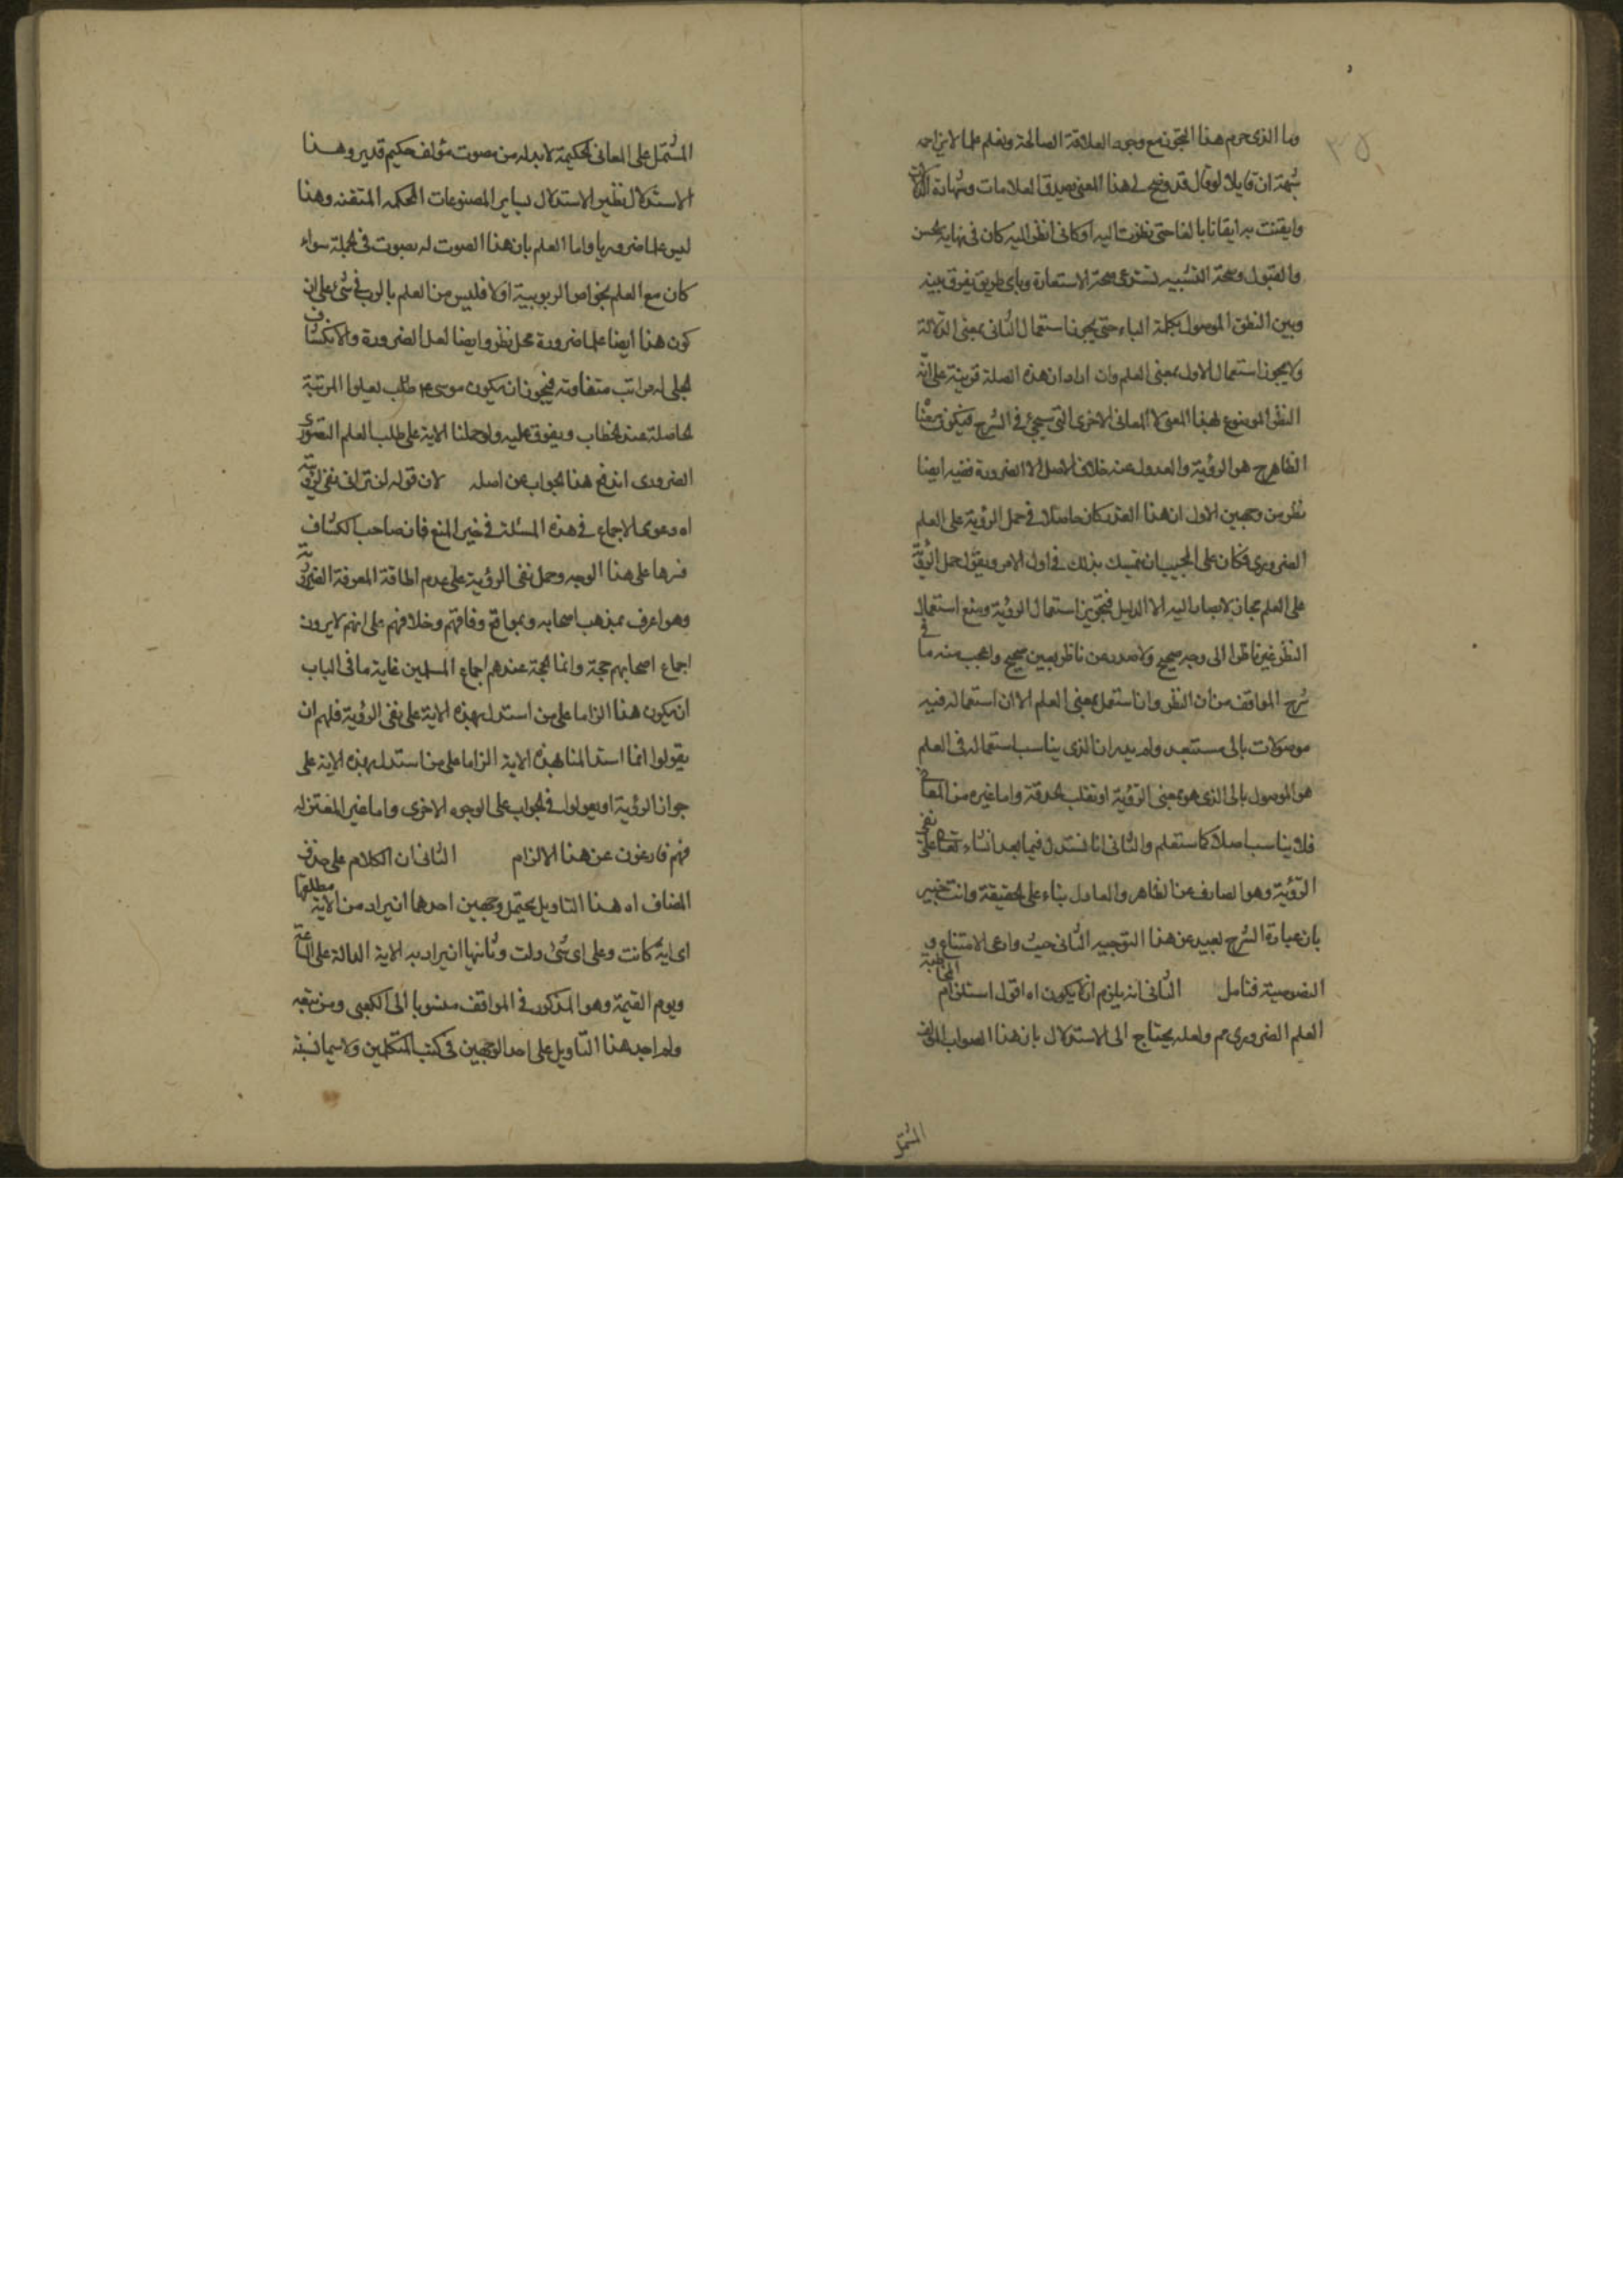 ٣٥
وما الذي حرم هذا التجوز مع وجود العلاقة الصالحة ونعلم علما لا يزاحمه
شبهة ان قايلا لو قال قد وضح لي هذا المعنى بصدق العلامات وشهادة
وايقنت به ايقانا بالغا حتى نظرت اليه او كاني انظر اليه كان في نهاية الحسن
والقبول وصحة التشبيه تستدعي صحة الاستعارة وباي طريق يفرق بينه
وبين النطق الموصول بكلمة الباء حتى يجوز استعمال الثاني بمعنى الدلالة
ولا يجوز استعمال الاول بمعنى العلم وان اراد ان هذه الصلة قرينة على انه
النظر الموضوع لهذا المعنى لا المعاني الاخرى التي سيجئ في الشرح فيكون معنا
الظاهر ح هو الرؤية والعدول عنه خلاف الاصل الا لضرورة ففيه ايضا
نظر من وجهين الاول ان هذا القدر كان حاصلا في حمل الرؤية على العلم
الضروري فكان على المجيب ان يتمسك بذلك في اول الامر ويقول حمل الرؤية
على العلم مجاز لا يصار اليه الا لدليل فتجويز استعمال الرؤية ومنع استعمال
النظر غير ناظر الى وجه صحيح ولا صدر عن ناظر بعين صحيح واعجب منه ما في
شرح المواقف من ان النظر وان استعمل بمعنى العلم الا ان استعماله فيه
موصولا بالى مستبعد ولم يدر ان الذي يناسب استعماله في العلم
هو الموصول بالى الذي هو بمعنى الرؤية او تقلب الحدقة واما غيره من المعاني
فلا يناسب اصلا كما ستعلم والثاني انا نستدل فيما بعد انشاء تعا على نفي
الرؤية وهو الصارف عن الظاهر والعادل بناء على الحقيقة وانت خبير
بان عبارة الشرح بعيد عن هذا التوجيه الثاني حيث وادعى الامتناع و
النصوصية فتامل الثاني انه يلزم ان لا يكون اه اقول استلزام المخاطبة
العلم الضروري مم ولعله يحتاج الى الاستدلال بان هذا الصواب المؤلف
المشتمل
المشتمل على المعاني الحكيمة لا بد له من مصوت مؤلف حكيم قدير وهذا
الاستدلال نظير الاستدلال بساير المصنوعات المحكمه المتقنه وهذا
ليس علما ضروريا واما العلم بان هذا الصوت له مصوت في الجملة سواء
كان مع العلم بخواص الربوبية او لا فليس من العلم بالرب في شئ على ان
كون هذا ايضا علما ضرورة محل نظر وايضا لعل الضرورة والانكشاف
الجلى له مراتب متفاوته فيجوز ان يكون موسى عم طلب ليعلوا المرتبة
الحاصلة عند الخطاب ويفوق عليه ولو حملنا الاية على طلب العلم التصوري
الضروري اندفع هذا الجواب عن اصله لان قوله لن تراني نفي لرؤيته
اه دعوى الاجماع في هذه المسئلة في حيز المنع فان صاحب الكشاف
فسرها على هذا الوجه وحمل نفي الرؤية على عدم اطاقة المعرفة الضرورية
وهو اعرف بمذهب اصحابه وبمواقع وفاقهم وخلافهم على انهم لا يرون
اجماع اصحابهم حجة وانما الحجة عندهم اجماع المسلمين غاية ما في الباب
ان يكون هذا الزاما على من استدل بهذه الاية على نفي الرؤية فلهم ان
يقولوا انما استدللنا بهذه الاية الزاما على من استدل بهذه الاية على
جواز الرؤية او يعولوا في الجواب على الوجوه الاخرى واما غير المعتزله
فهم فارغون عن هذا الالزام الثاني ان الكلام على حذف
المضاف اه هذا التاويل يحتمل وجهين احدهما ان يراد من الاية مطلقها
اى اية كانت وعلى اى شئ دلت وثانيها ان يراد به الاية الدالة على الساعة
ويوم القيمة وهو المذكور في المواقف منسوبا الى الكعبي ومن تبعه
ولم اجد هذا التاويل على احد الوجهين في كتب المتكلمين ولا سيما نسبته